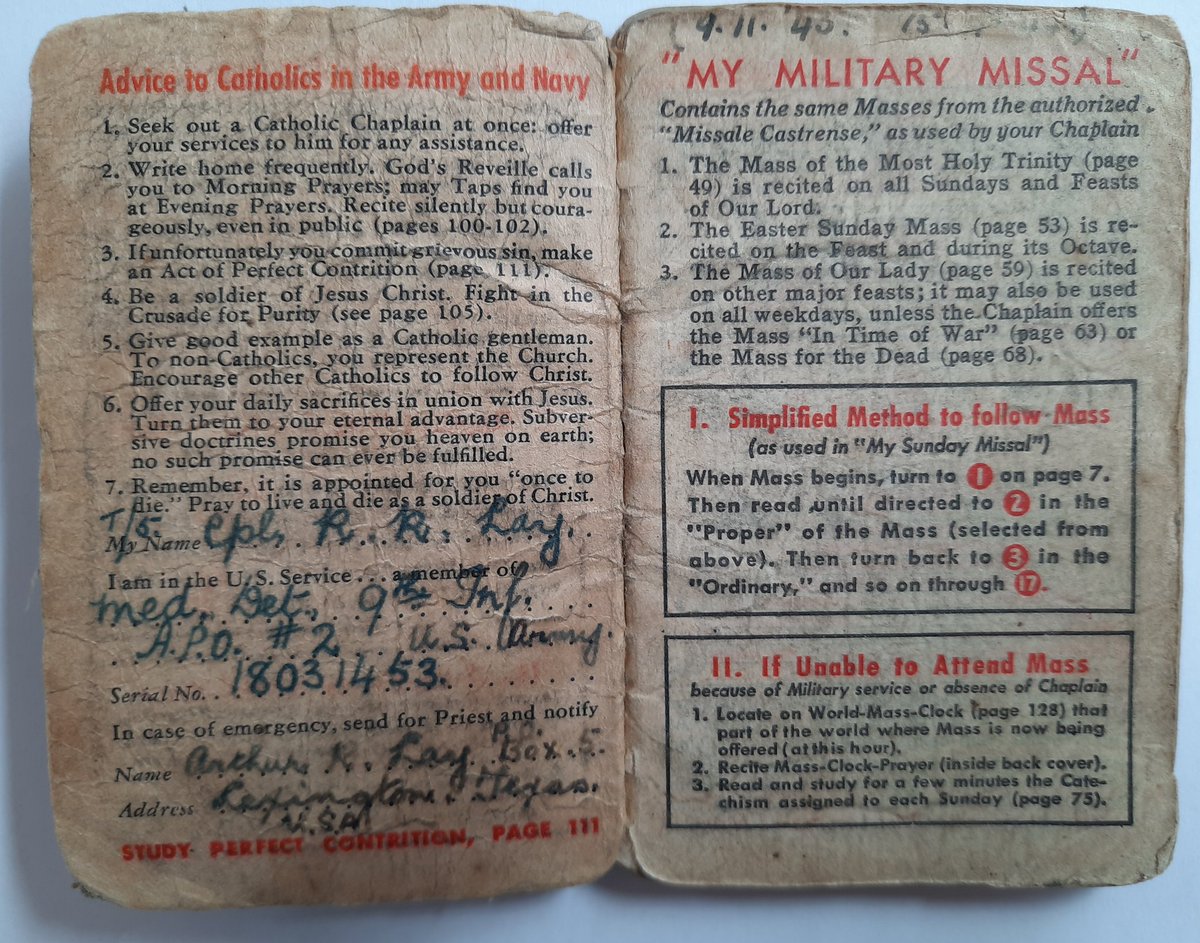 Advice to Catholics in the Army and Navy
1. Seek out a Catholic Chaplain at once: offer
your services to him for any assistance.
2. Write home frequently. God's Reveille calls
you to Morning Prayers; may Taps find you
at Evening Prayers. Recite silently but coura-
geously, even in public (pages 100-102).
3. If unfortunately you commit grievous sin, make
an Act of Perfect Contrition (page 111).
4. Be a soldier of Jesus Christ. Fight in the
Crusade for Purity (see page 105).
5. Give good example as a Catholic gentleman.
To non-Catholics, you represent the Church.
Encourage other Catholics to follow Christ.
6. Offer your daily sacrifices in union with Jesus.
Turn them to your eternal advantage. Subver-
sive doctrines promise you heaven on earth;
no such promise can ever be fulfilled.
7. Remember, it is appointed for you "once to
die." Pray to live and die as a soldier of Christ.
T/5.
My Name Cpl. R. R. Lay.
I am in the U.S. Service... a member of
med. Det., 9th Inf.
A.P.O. #2 U.S. Army.
Serial No. 18031453.
In case of emergency, send for Priest and notify
Name Arthur R. Lay Box 5.
Address Lexington. Texas.
U.S.A.
STUDY PERFECT CONTRITION, PAGE 111
9.11.
"MY MILITARY MISSAL"
Contains the same Masses from the authorized
"Missale Castrense," as used by your Chaplain
1. The Mass of the Most Holy Trinity (page
49) is recited on all Sundays and Feasts
of Our Lord.
2. The Easter Sunday Mass (page 53) is re-
cited on the Feast and during its Octave.
3. The Mass of Our Lady (page 59) is recited
on other major feasts; it may also be used
on all weekdays, unless the Chaplain offers
the Mass "In Time of War" (page 63) or
the Mass for the Dead (page 68).
I. Simplified Method to follow Mass
(as used in "My Sunday Missal")
When Mass begins, turn to 1 on page 7.
Then read until directed to 2 in the
"Proper" of the Mass (selected from
above). Then turn back to 3 in the
"Ordinary," and so on through 17.
II. If Unable to Attend Mass
because of Military service or absence of Chaplain
1. Locate on World-Mass-Clock (page 128) that
part of the world where Mass is now being
offered (at this hour).
2. Recite Mass-Clock-Prayer (inside back cover).
3. Read and study for a few minutes the Cate-
chism assigned to each Sunday (page 75).